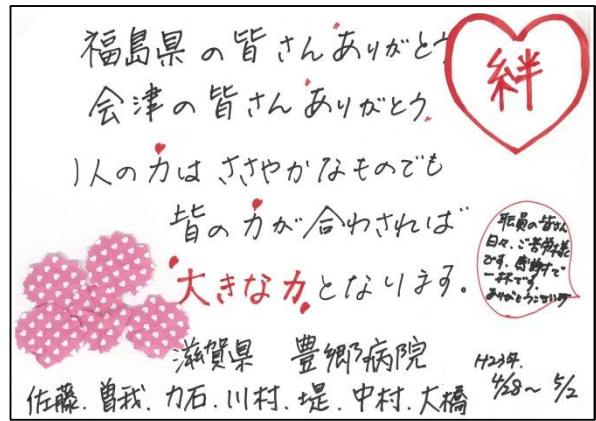 福島県の皆さんありがとう
会津の皆さんありがとう
絆
1人の力は ささやかなものでも
皆の力が合わされば
大きな力となります。
職員の皆さん
日々、ご苦労様
です。感謝で
一杯です。
ありがとうございます
滋賀県 豊郷病院
佐藤.曽我.力石.川村.堤.中村.大橋
H23年.
4/28~5/2